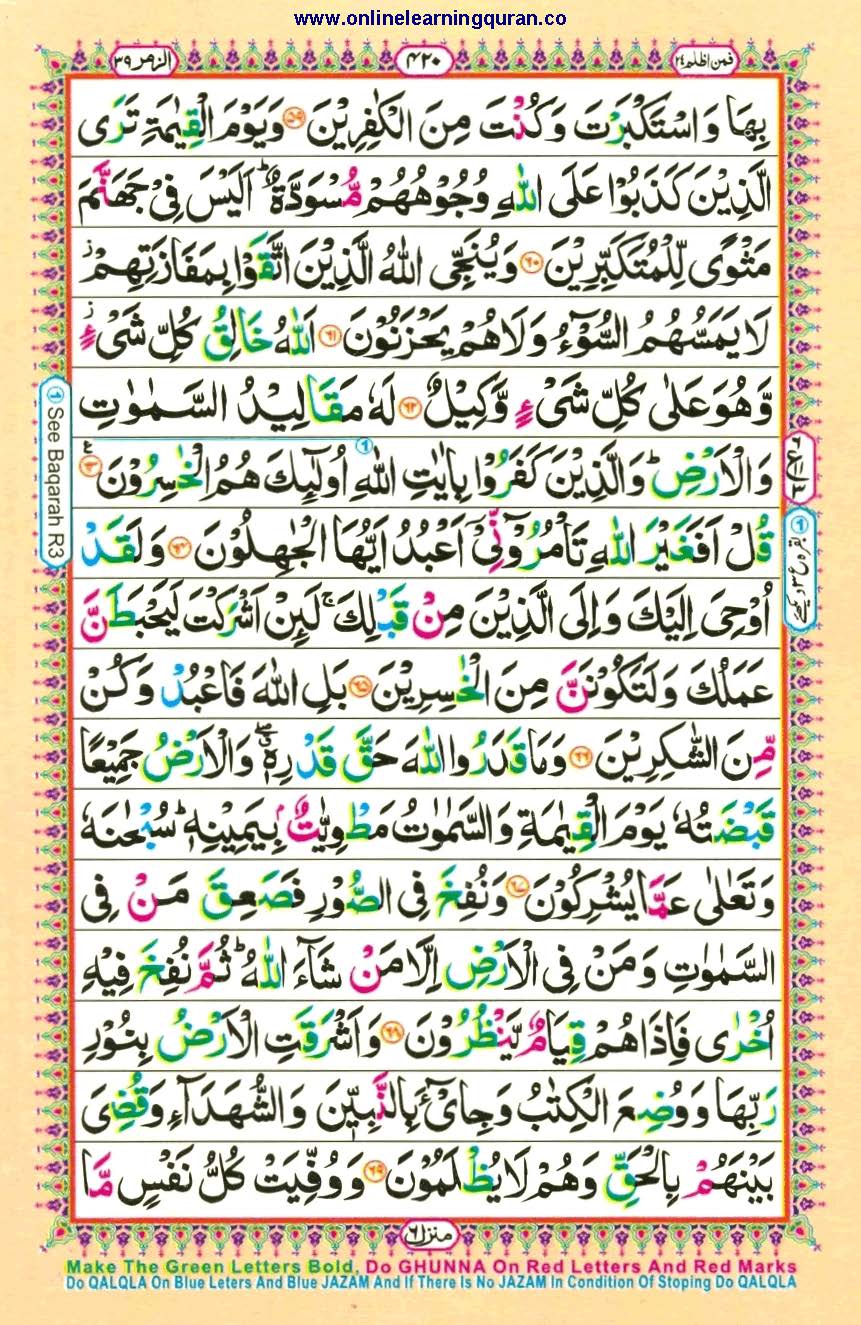 www.onlinelearningquran.co
فمن اظلم ٢٤
٤٢٠
الزمر ٣٩
بِهَا وَاسْتَكْبَرْتَ وَكُنْتَ مِنَ الْكٰفِرِيْنَ ﴿٥٩﴾ وَيَوْمَ الْقِيٰمَةِ تَرَى
الَّذِيْنَ كَذَبُوْا عَلَى اللّٰهِ وُجُوْهُهُمْ مُّسْوَدَّةٌ ؕ اَلَيْسَ فِيْ جَهَنَّمَ
مَثْوًى لِّلْمُتَكَبِّرِيْنَ ﴿٦٠﴾ وَيُنَجِّي اللّٰهُ الَّذِيْنَ اتَّقَوْا بِمَفَازَتِهِمْ ز
لَا يَمَسُّهُمُ السُّوْٓءُ وَلَا هُمْ يَحْزَنُوْنَ ﴿٦١﴾ اَللّٰهُ خَالِقُ كُلِّ شَيْءٍ ز
وَّهُوَ عَلٰى كُلِّ شَيْءٍ وَّكِيْلٌ ﴿٦٢﴾ لَهٗ مَقَالِيْدُ السَّمٰوٰتِ
وَالْاَرْضِ ؕ وَالَّذِيْنَ كَفَرُوْا بِاٰيٰتِ اللّٰهِ اُولٰٓئِكَ هُمُ الْخٰسِرُوْنَ ﴿٦٣﴾ ع
قُلْ اَفَغَيْرَ اللّٰهِ تَاْمُرُوْٓنِّيْٓ اَعْبُدُ اَيُّهَا الْجٰهِلُوْنَ ﴿٦٤﴾ وَلَقَدْ
اُوْحِيَ اِلَيْكَ وَاِلَى الَّذِيْنَ مِنْ قَبْلِكَ ۚ لَئِنْ اَشْرَكْتَ لَيَحْبَطَنَّ
عَمَلُكَ وَلَتَكُوْنَنَّ مِنَ الْخٰسِرِيْنَ ﴿٦٥﴾ بَلِ اللّٰهَ فَاعْبُدْ وَكُنْ
مِّنَ الشّٰكِرِيْنَ ﴿٦٦﴾ وَمَا قَدَرُوا اللّٰهَ حَقَّ قَدْرِهٖ ۖ وَالْاَرْضُ جَمِيْعًا
قَبْضَتُهٗ يَوْمَ الْقِيٰمَةِ وَالسَّمٰوٰتُ مَطْوِيّٰتٌۢ بِيَمِيْنِهٖ ؕ سُبْحٰنَهٗ
وَتَعٰلٰى عَمَّا يُشْرِكُوْنَ ﴿٦٧﴾ وَنُفِخَ فِي الصُّوْرِ فَصَعِقَ مَنْ فِي
السَّمٰوٰتِ وَمَنْ فِي الْاَرْضِ اِلَّا مَنْ شَآءَ اللّٰهُ ؕ ثُمَّ نُفِخَ فِيْهِ
اُخْرٰى فَاِذَا هُمْ قِيَامٌ يَّنْظُرُوْنَ ﴿٦٨﴾ وَاَشْرَقَتِ الْاَرْضُ بِنُوْرِ
رَبِّهَا وَوُضِعَ الْكِتٰبُ وَجِايْٓءَ بِالنَّبِيّٖنَ وَالشُّهَدَآءِ وَقُضِيَ
بَيْنَهُمْ بِالْحَقِّ وَهُمْ لَا يُظْلَمُوْنَ ﴿٦٩﴾ وَوُفِّيَتْ كُلُّ نَفْسٍ مَّا
١ See Baqarah R3
منزل ٦
Make The Green Letters Bold, Do GHUNNA On Red Letters And Red Marks
Do QALQLA On Blue Leters And Blue JAZAM And If There Is No JAZAM In Condition Of Stoping Do QALQLA